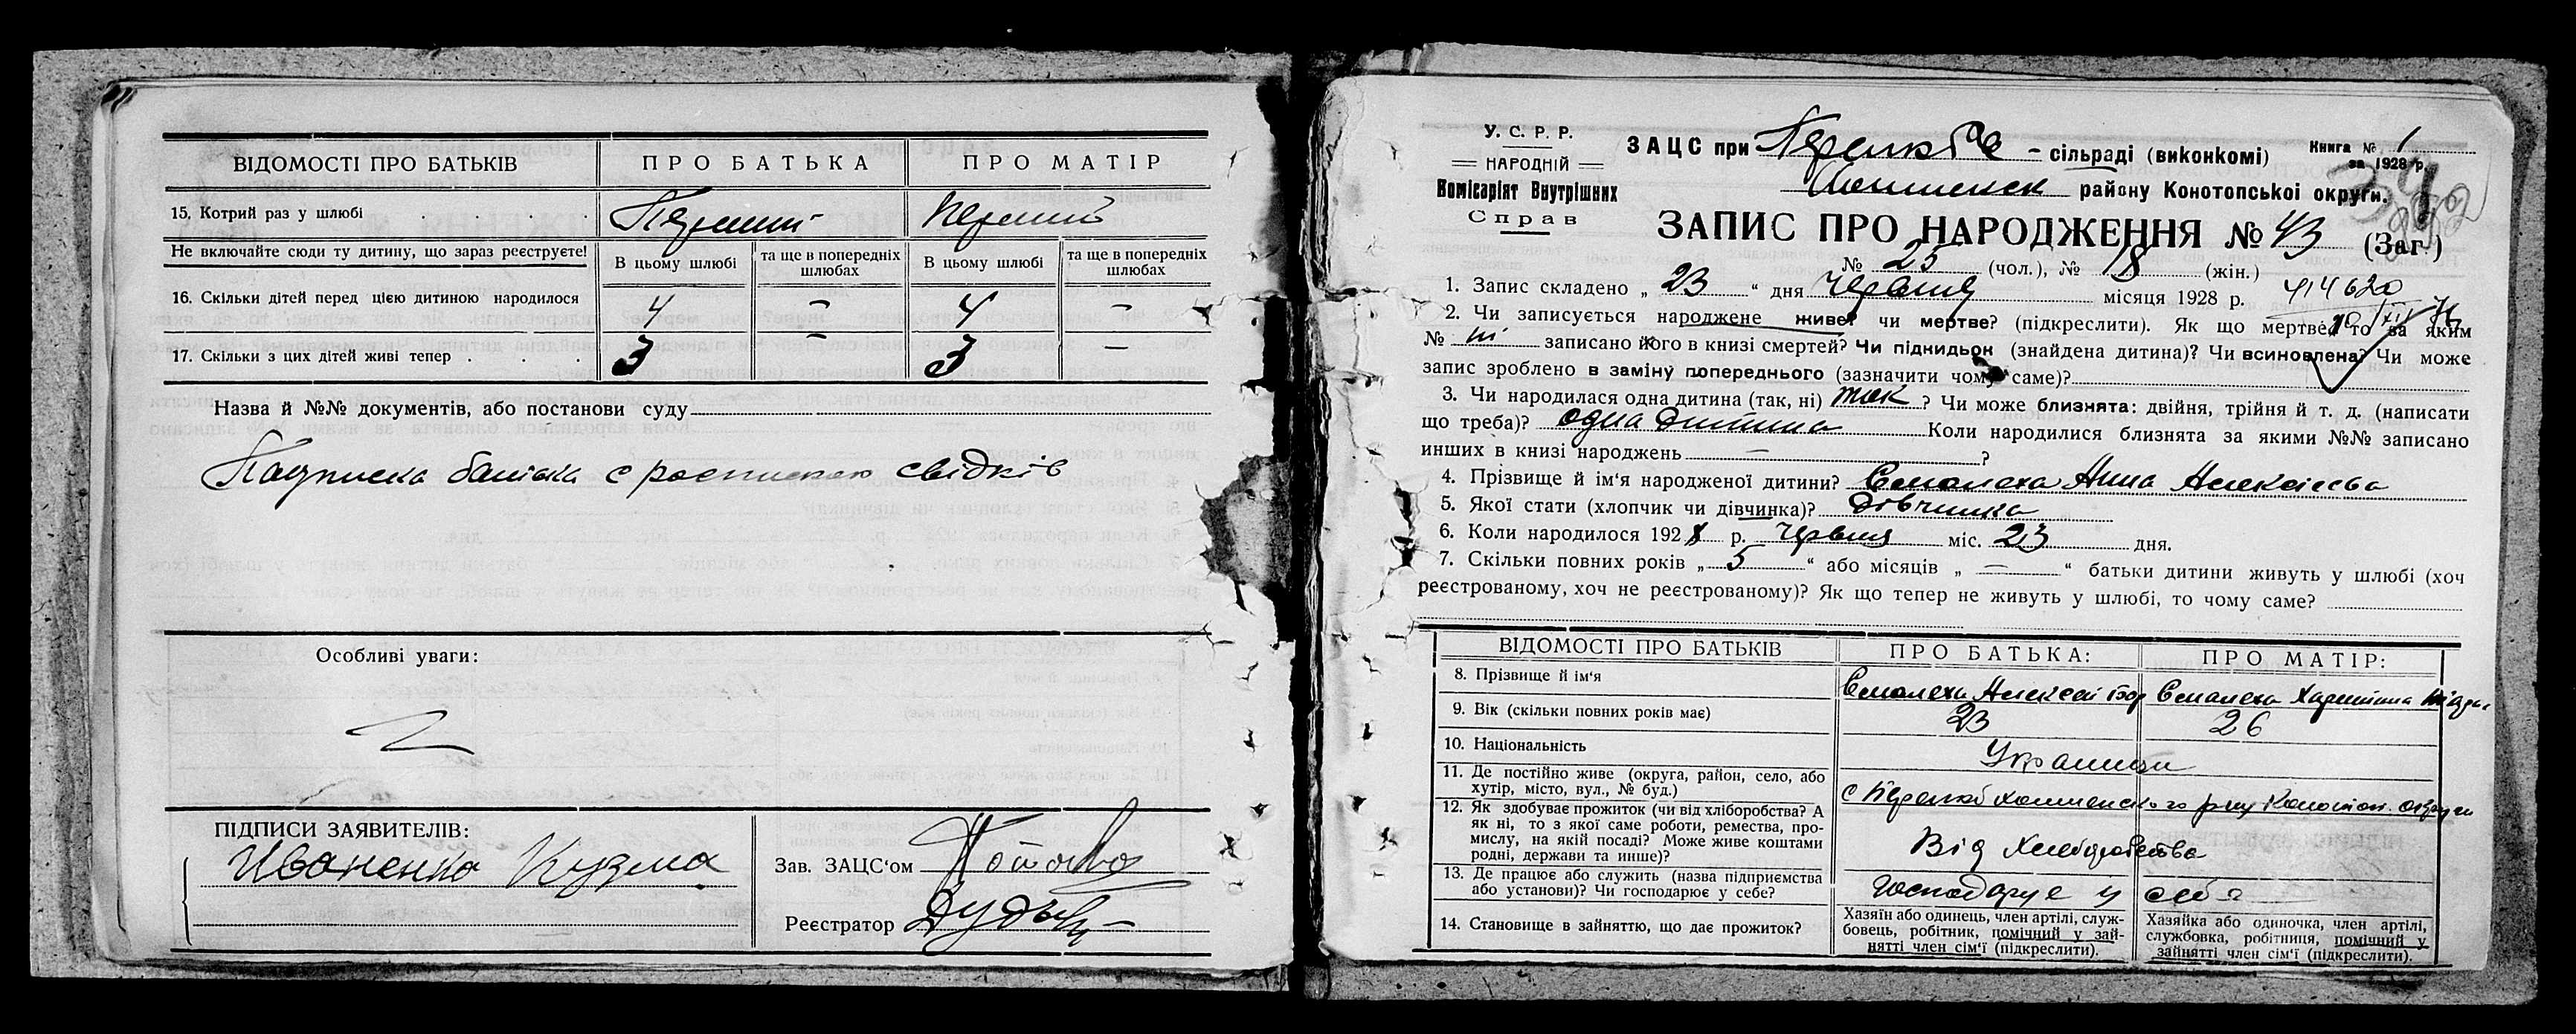 ВІДОМОСТІ ПРО БАТЬКІВ
ПРО БАТЬКА
ПРО МАТІР
15. Котрий раз у шлюбі
Перший
Перший
Не включайте сюди ту дитину, що зараз реєструєте!
В цьому шлюбі
та ще в попередніх шлюбах
В цьому шлюбі
та ще в попередніх шлюбах
16. Скільки дітей перед цією дитиною народилося
4 – 4 –
17. Скільки з цих дітей живі тепер
3 – 3 –
Назва й №№ документів, або постанови суду
Подписка батька с роспискою свідків
Особливі уваги:
ПІДПИСИ ЗАЯВИТЕЛІВ:
Иваненко Кузма
Зав. ЗАЦС'ом
Реєстратор
У. С. Р. Р.
НАРОДНІЙ
Комісаріят Внутрішних
Справ
ЗАЦС при - сільраді (виконкомі)
Книга № 1
за 1928 р.
району Конотопської округи.
ЗАПИС ПРО НАРОДЖЕННЯ № 43 (Заг.)
№ 25 (чол.), № 18 (жін.)
1. Запис складено „ 23 “ дня Червня місяця 1928 р.
414620
2. Чи записується народжене живе? чи мертве? (підкреслити). Як що мертве, то за яким
№ записано його в книзі смертей? Чи підкидьок (знайдена дитина)? Чи всиновлена? Чи може
запис зроблено в заміну попереднього (зазначити чому саме)?
3. Чи народилася одна дитина (так, ні) так ? Чи може близнята: двійня, трійня й т. д. (написати
що треба)? одна дитина Коли народилися близнята за якими №№ записано
инших в книзі народжень – ?
4. Прізвище й ім'я народженої дитини? Анна Алексієва
5. Якої стати (хлопчик чи дівчинка)? дівчинка
6. Коли народилося 1928 р. Червня міс. 23 дня.
7. Скільки повних років „ 5 “ або місяців „ – “ батьки дитини живуть у шлюбі (хоч
реєстрованому, хоч не реєстрованому)? Як що тепер не живуть у шлюбі, то чому саме?
ВІДОМОСТІ ПРО БАТЬКІВ
ПРО БАТЬКА:
ПРО МАТІР:
8. Прізвище й ім'я
Алексей
9. Вік (скільки повних років має)
23
26
10. Національність
Українці
11. Де постійно живе (округа, район, село, або
хутір, місто, вул., № буд.)
12. Як здобуває прожиток (чи від хліборобства? А
як ні, то з якої саме роботи, ремества, про-
мислу, на якій посаді? Може живе коштами
родні, держави та инше)?
Від Хлеборобства
13. Де працює або служить (назва підприємства
або установи)? Чи господарює у себе?
господарує у себя
14. Становище в зайняттю, що дає прожиток?
Хазяїн або одинець, член артілі, служ-
бовець, робітник, помічний у зай-
нятті член сім'ї (підкреслити).
Хазяйка або одиночка, член артілі,
службовка, робітниця, помічний у
зайнятті член сім'ї (підкреслити).